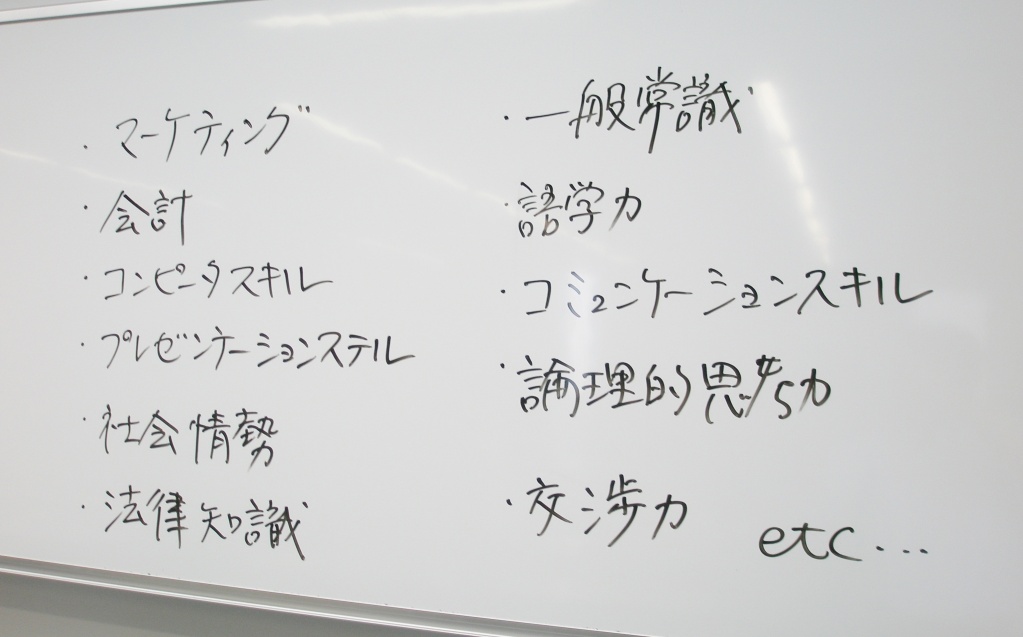 ・マーケティング
・会計
・コンピータスキル
・プレゼンテーションスキル
・社会情勢
・法律知識
・一般常識
・語学力
・コミュニケーションスキル
・論理的思考力
・交渉力
etc...